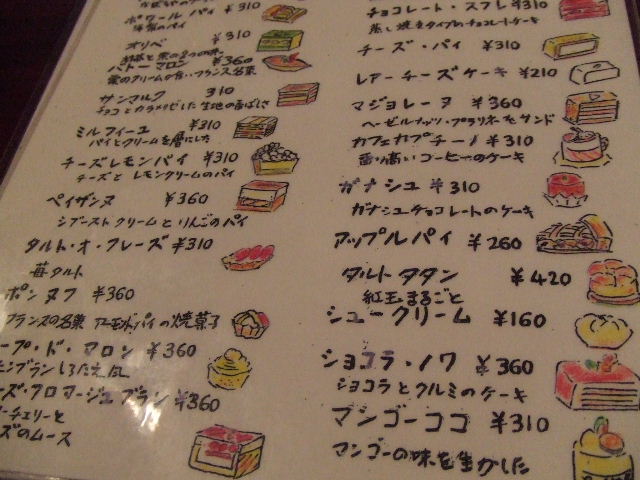 ポワール パイ ¥310
洋梨のパイ
オリベ ¥310
抹茶と栗の
バトー マロン ¥360
栗のクリームが フランス名菓
サンマルク 310
チョコとカラメリゼした生地の香ばしさ
ミルフィーユ ¥310
パイとクリームを層にした
チーズレモンパイ ¥310
チーズと レモンクリームのパイ
ペイザンヌ ¥360
シブースト クリームとりんごのパイ
タルト・オ・フレーズ ¥310
苺タルト
ポンヌフ ¥360
フランスの名菓 アーモンドパイの焼菓子
ープ・ド・マロン ¥360
ンブラン
ーズ・フロマージュブラン ¥360
ーチェリーと
ズのムース
チョコレート・スフレ ¥310
蒸し焼きタイプのチョコレートケーキ
チーズ・パイ ¥310
レアーチーズケーキ ¥210
マジョレーヌ ¥360
ヘーゼルナッツ・プラリネをサンド
カフェカプチーノ ¥310
香り高いコーヒーのケーキ
ガナシュ ¥310
ガナシュチョコレートのケーキ
アップルパイ ¥260
タルト タタン ¥420
紅玉まるごと
シュークリーム ¥160
ショコラ・ノワ ¥360
ショコラとクルミのケーキ
マンゴーココ ¥310
マンゴーの味を生かした